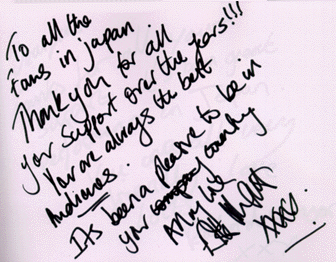 To all the
Fans in Japan
Thank you for all
your support over the years!!!
You are always the best
Audiences.
Its been a pleasure to be in
your company country
xxxs.